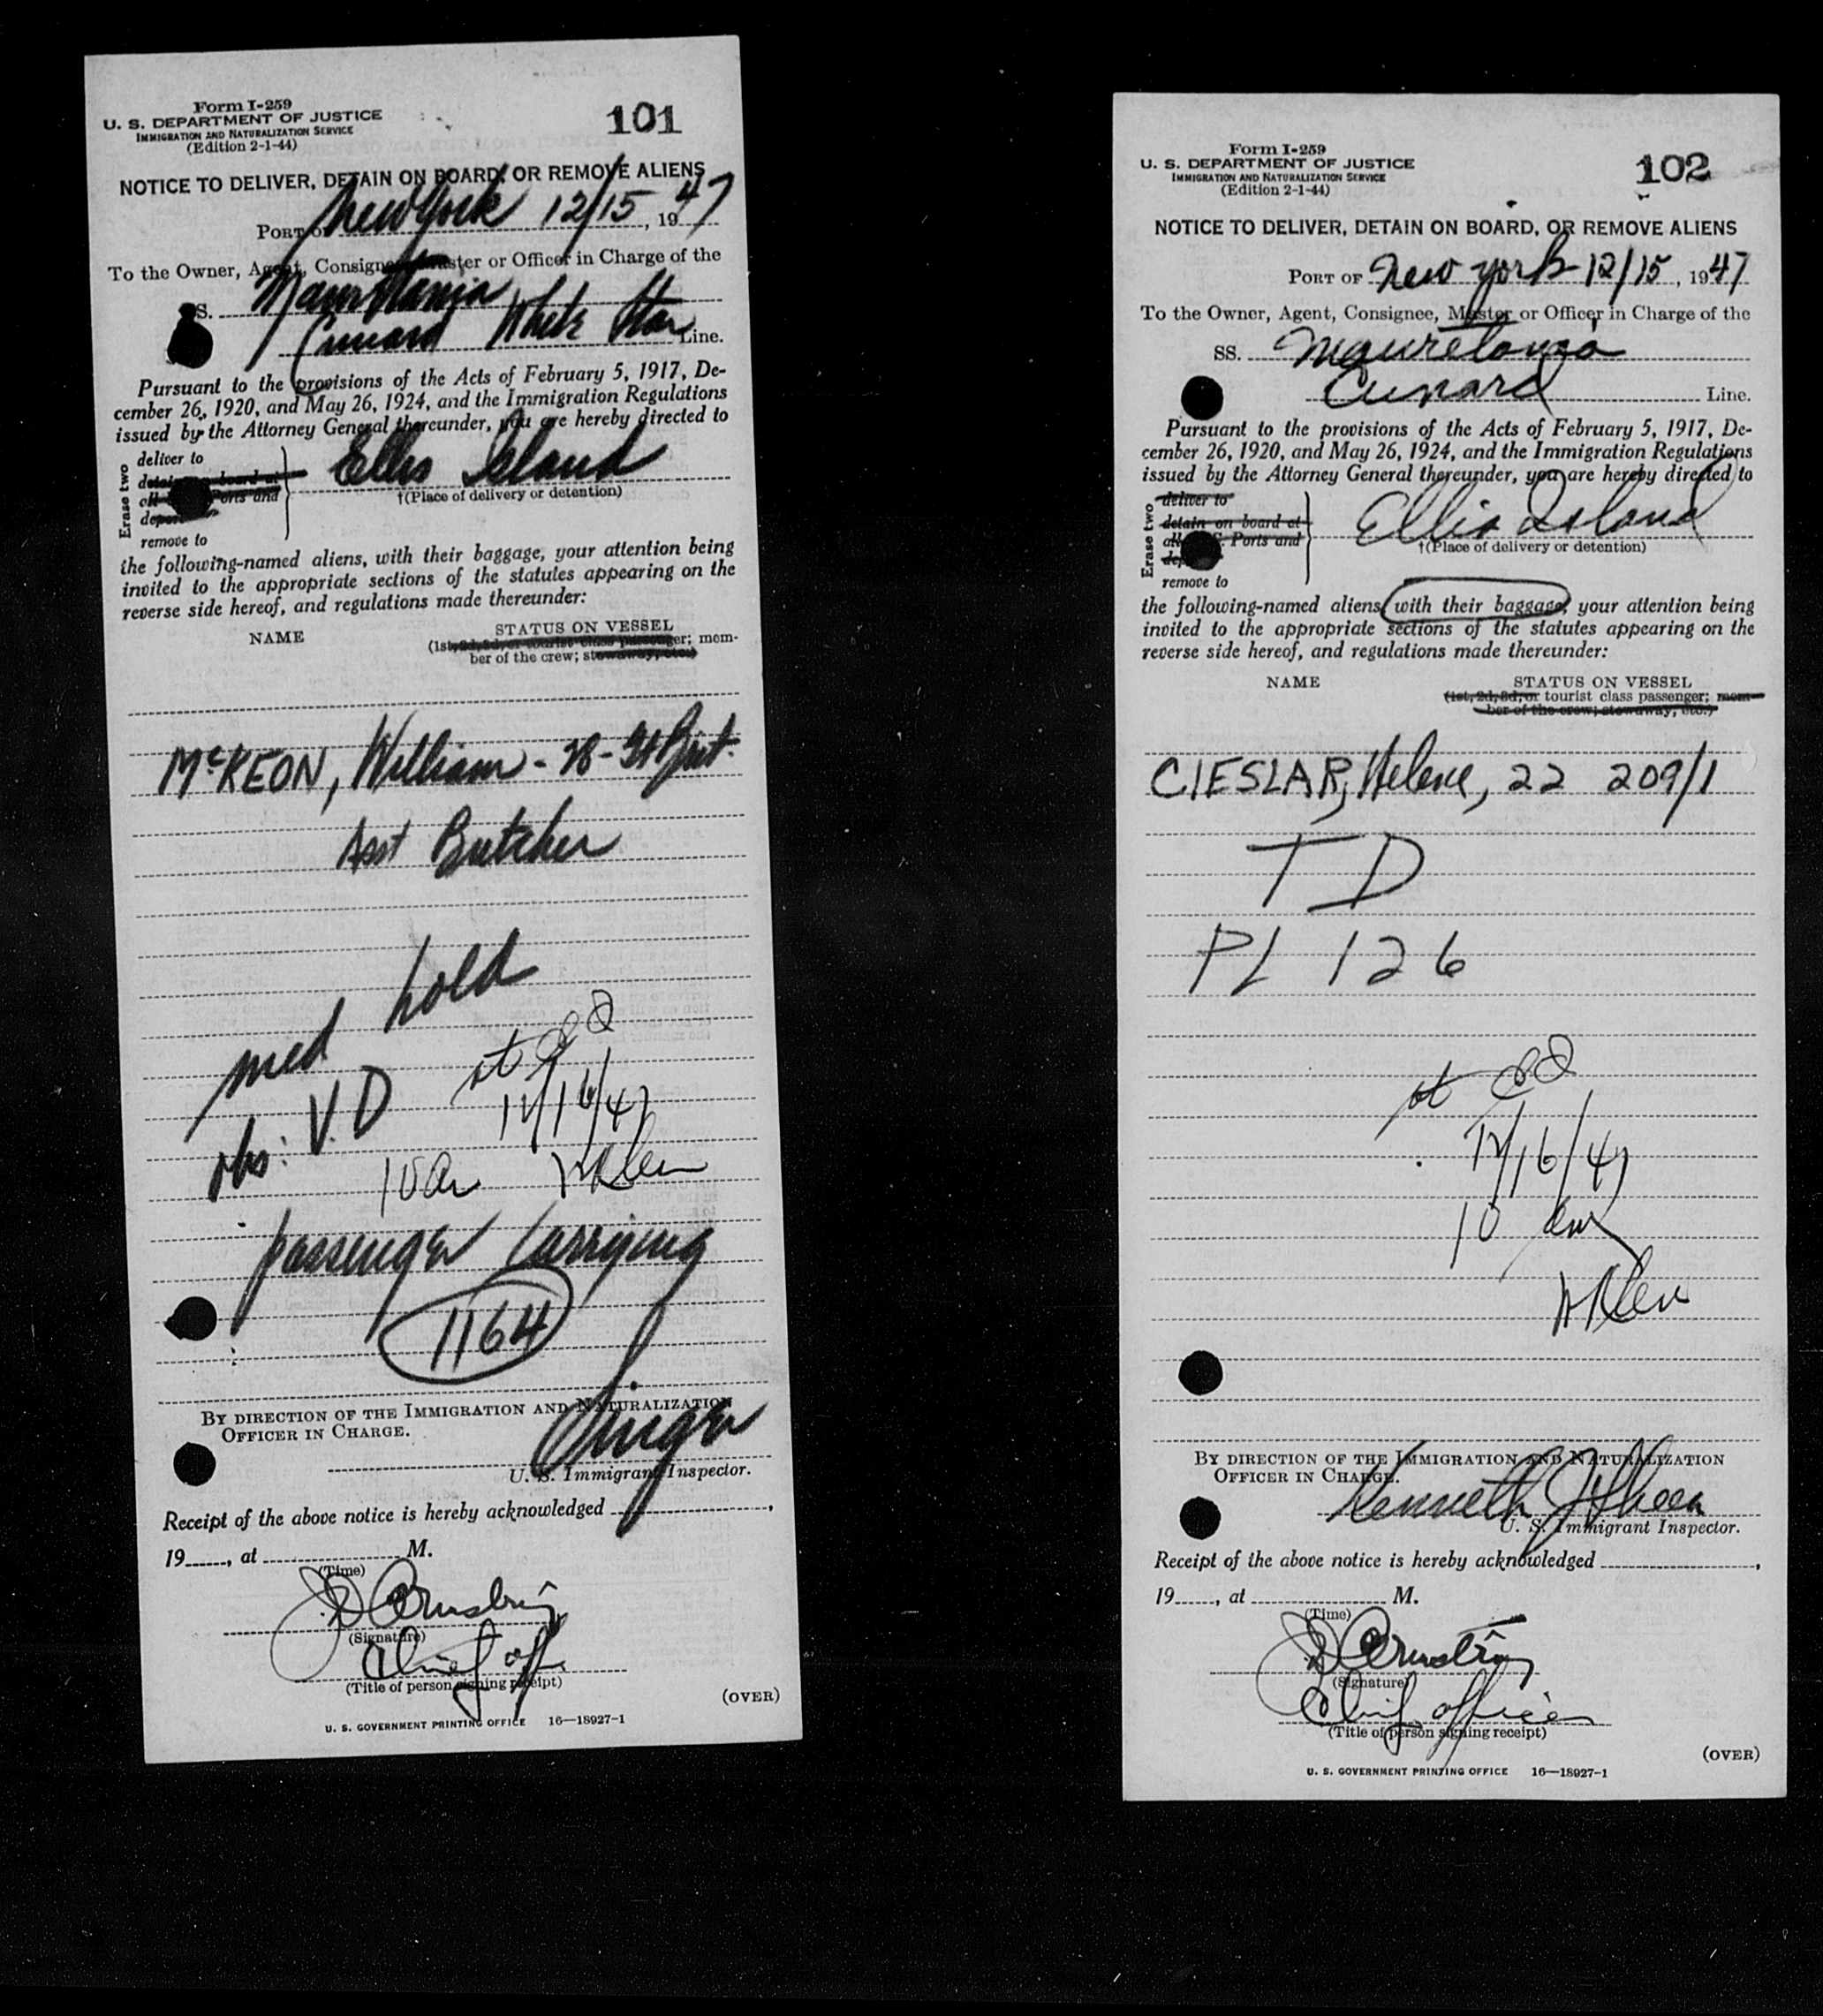 Form I-259
U. S. DEPARTMENT OF JUSTICE
IMMIGRATION AND NATURALIZATION SERVICE
(Edition 2-1-44)
101
NOTICE TO DELIVER, DETAIN ON BOARD, OR REMOVE ALIENS
PORT OF New York 12/15, 1947
To the Owner, Agent, Consignee, Master or Officer in Charge of the
SS. Mauretania
Cunard White Star Line.
Pursuant to the provisions of the Acts of February 5, 1917, De-
cember 26, 1920, and May 26, 1924, and the Immigration Regulations
issued by the Attorney General thereunder, you are hereby directed to
Erase two
deliver to
detain on board at
all U. S. Ports and
deport
remove to
Ellis Island
†(Place of delivery or detention)
the following-named aliens, with their baggage, your attention being
invited to the appropriate sections of the statutes appearing on the
reverse side hereof, and regulations made thereunder:
NAME
STATUS ON VESSEL
(1st, 2d, 3d, or tourist class passenger; mem-
ber of the crew; stowaway, etc.)
McKEON, William - 28 -
Asst Butcher
med hold
obs: V.D
at
12/16/47
10
passenger carrying
1164
BY DIRECTION OF THE IMMIGRATION AND NATURALIZATION
OFFICER IN CHARGE.
Singer
U. S. Immigrant Inspector.
Receipt of the above notice is hereby acknowledged
19, at M.
(Time)
J D Armstrong
(Signature)
Chief off
(Title of person signing receipt)
(OVER)
U. S. GOVERNMENT PRINTING OFFICE 16—18927-1
Form I-259
U. S. DEPARTMENT OF JUSTICE
IMMIGRATION AND NATURALIZATION SERVICE
(Edition 2-1-44)
102
NOTICE TO DELIVER, DETAIN ON BOARD, OR REMOVE ALIENS
PORT OF New York 12/15, 1947
To the Owner, Agent, Consignee, Master or Officer in Charge of the
SS. Mauretania
Cunard Line.
Pursuant to the provisions of the Acts of February 5, 1917, De-
cember 26, 1920, and May 26, 1924, and the Immigration Regulations
issued by the Attorney General thereunder, you are hereby directed to
Erase two
deliver to
detain on board at
all U. S. Ports and
deport
remove to
Ellis Island
†(Place of delivery or detention)
the following-named aliens, with their baggage, your attention being
invited to the appropriate sections of the statutes appearing on the
reverse side hereof, and regulations made thereunder:
NAME
STATUS ON VESSEL
(1st, 2d, 3d, or tourist class passenger; mem-
ber of the crew; stowaway, etc.)
CIESLAR, Helene, 22 209/1
T D
PL 126
at
12/16/47
10 am
BY DIRECTION OF THE IMMIGRATION AND NATURALIZATION
OFFICER IN CHARGE.
Kenneth J
U. S. Immigrant Inspector.
Receipt of the above notice is hereby acknowledged
19, at M.
(Time)
J D Armstrong
(Signature)
Chief officer
(Title of person signing receipt)
(OVER)
U. S. GOVERNMENT PRINTING OFFICE 16—18927-1